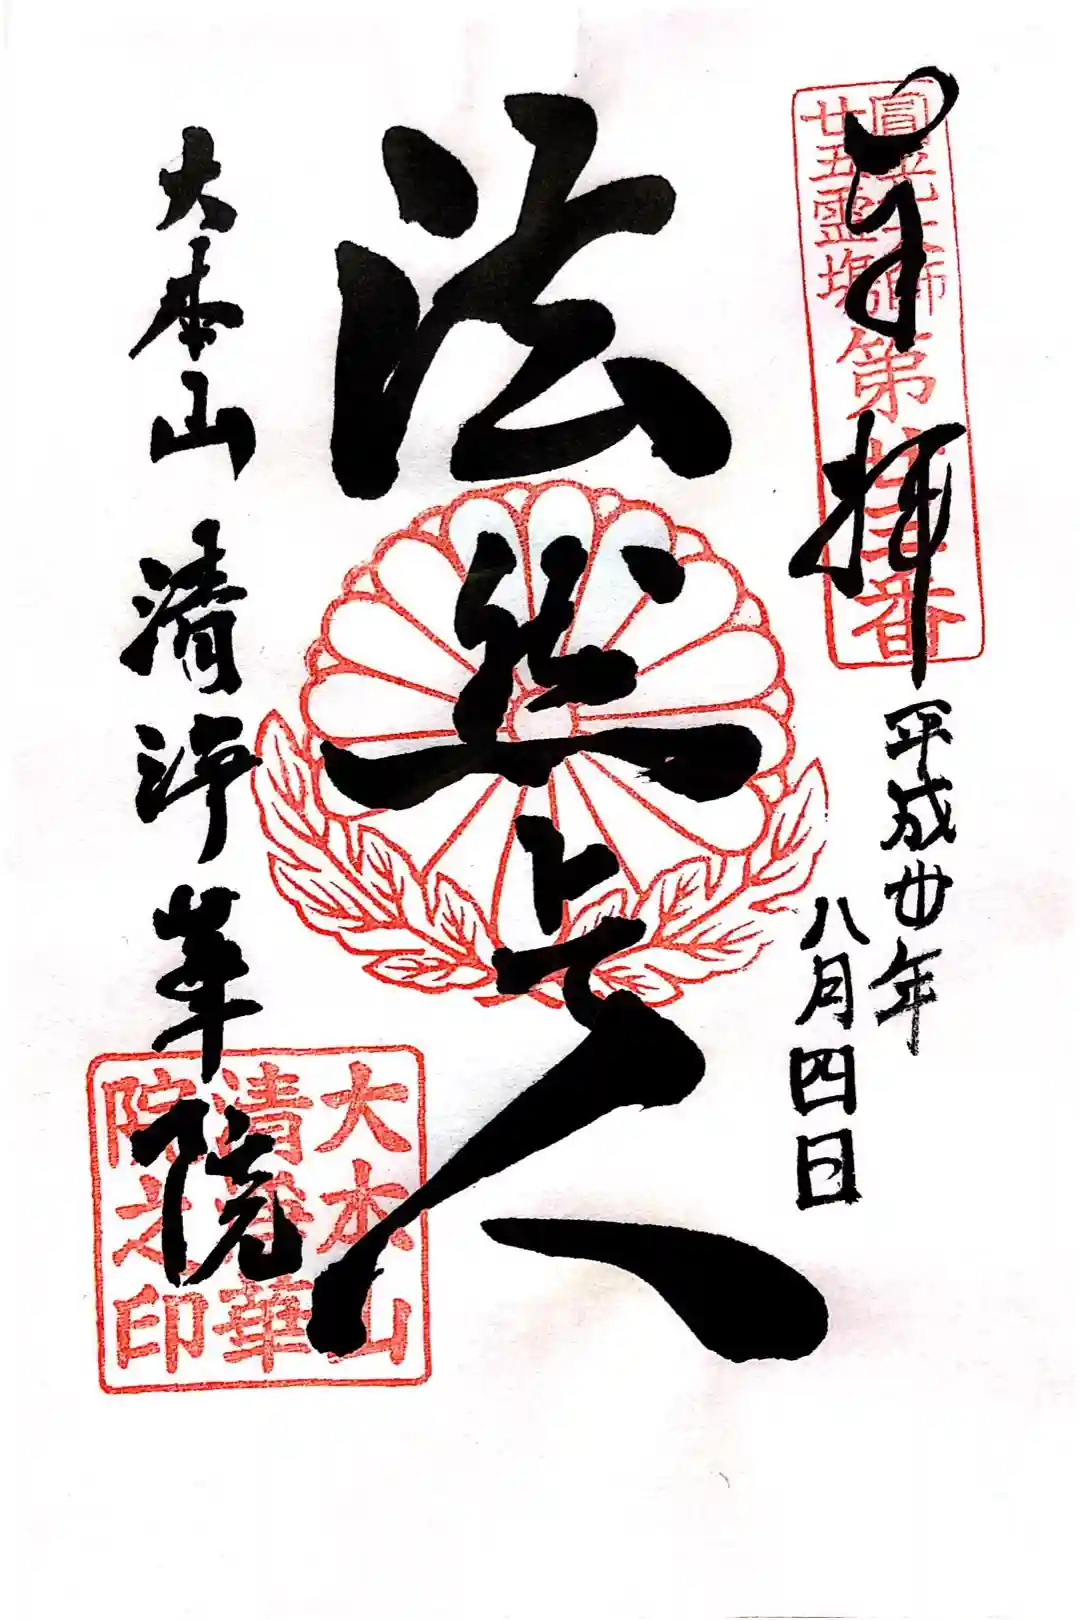 奉拝
圓光大師
廿五霊場
第廿三番
平成廿年
八月四日
法然上人
大本山 清浄華院
大本山
清浄華
院之印